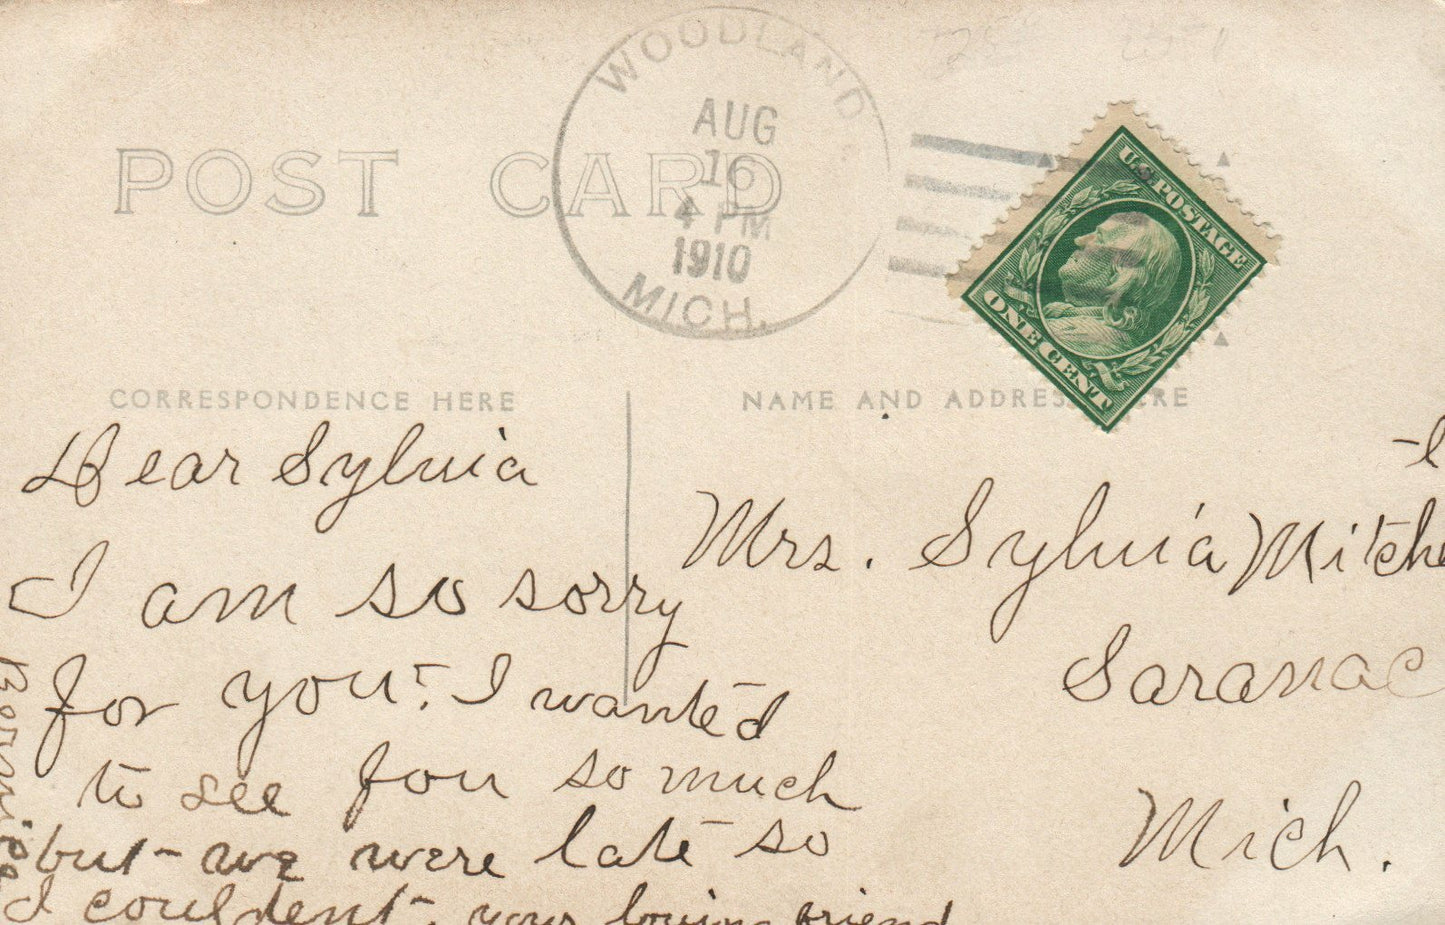 WOODLAND
AUG
16
4 PM
1910
MICH.
POST CARD
U.S. POSTAGE
ONE CENT
CORRESPONDENCE HERE
NAME AND ADDRESS HERE
Dear Sylvia
I am so sorry
for you. I wanted
to see you so much
but we were late so
I couldent. your loving friend
Mrs. Sylvia Mitche
Saranac
Mich.